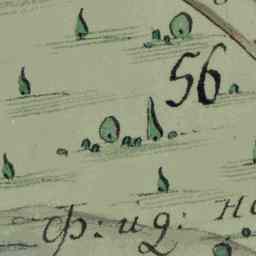 56
ф: ид: но